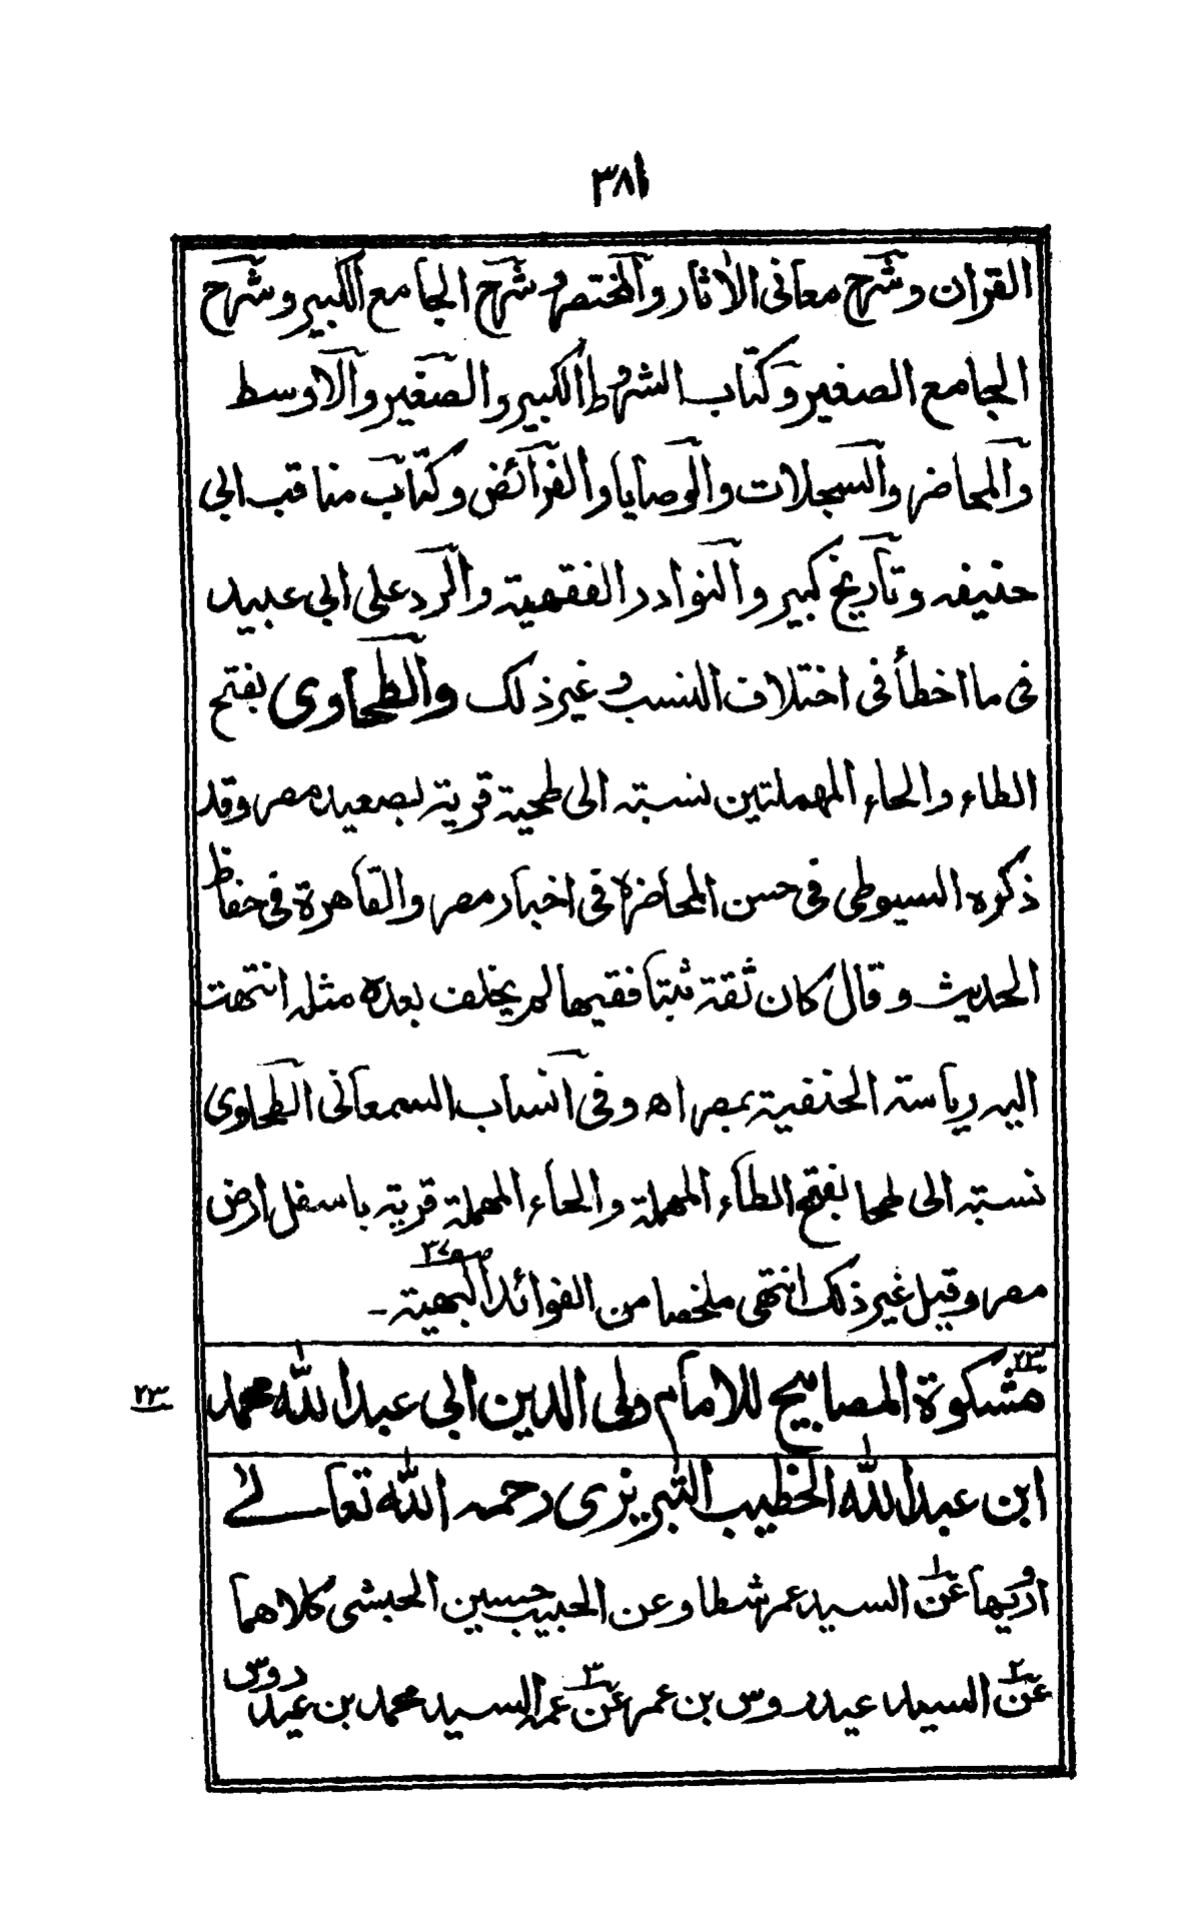 ٣٨١
القران وشرح معانى الاثار والمختصر وشرح الجامع الكبير وشرح
الجامع الصغير وكتاب الشروط الكبير والصغير والاوسط
والمحاضر والسجلات والوصايا والفرائض وكتاب مناقب ابى
حنيفه وتاريخ كبير والنوادر الفقهية والرد على ابى عبيد
فى ما اخطأ فى اختلاف النسب وغير ذلك والطحاوى بفتح
الطاء والحاء المهملتين نسبته الى طحية قرية بصعيد مصر وقد
ذكره السيوطى فى حسن المحاضرة فى اخبار مصر والقاهرة فى حفاظ
الحديث وقال كان ثقة ثبتا فقيها لم يخلف بعده مثله انتهت
اليه رياسته الحنفية بمصر اه وفى آنساب السمعانى الطحاوى
نسبته الى طحا بفتح الطآء المهملة والحآء المهملة قرية باسفل ارض
مصر وقيل غير ذلك انتهى ملخصا من الفوائد البهية ۔ صـ٣٢
٢٣ مشكوة المصابيح للامام ولى الدين ابى عبد الله محمد ٢٣
ابن عبد الله الخطيب التبريزى رحمه الله تعالى
ارويها عن١ السيد عمر شطا وعن الحبيب حسين الحبشى كلاهما
عن٢ السيد عيدروس بن عمر عن٣ عمه السيد محمد بن عيدروس